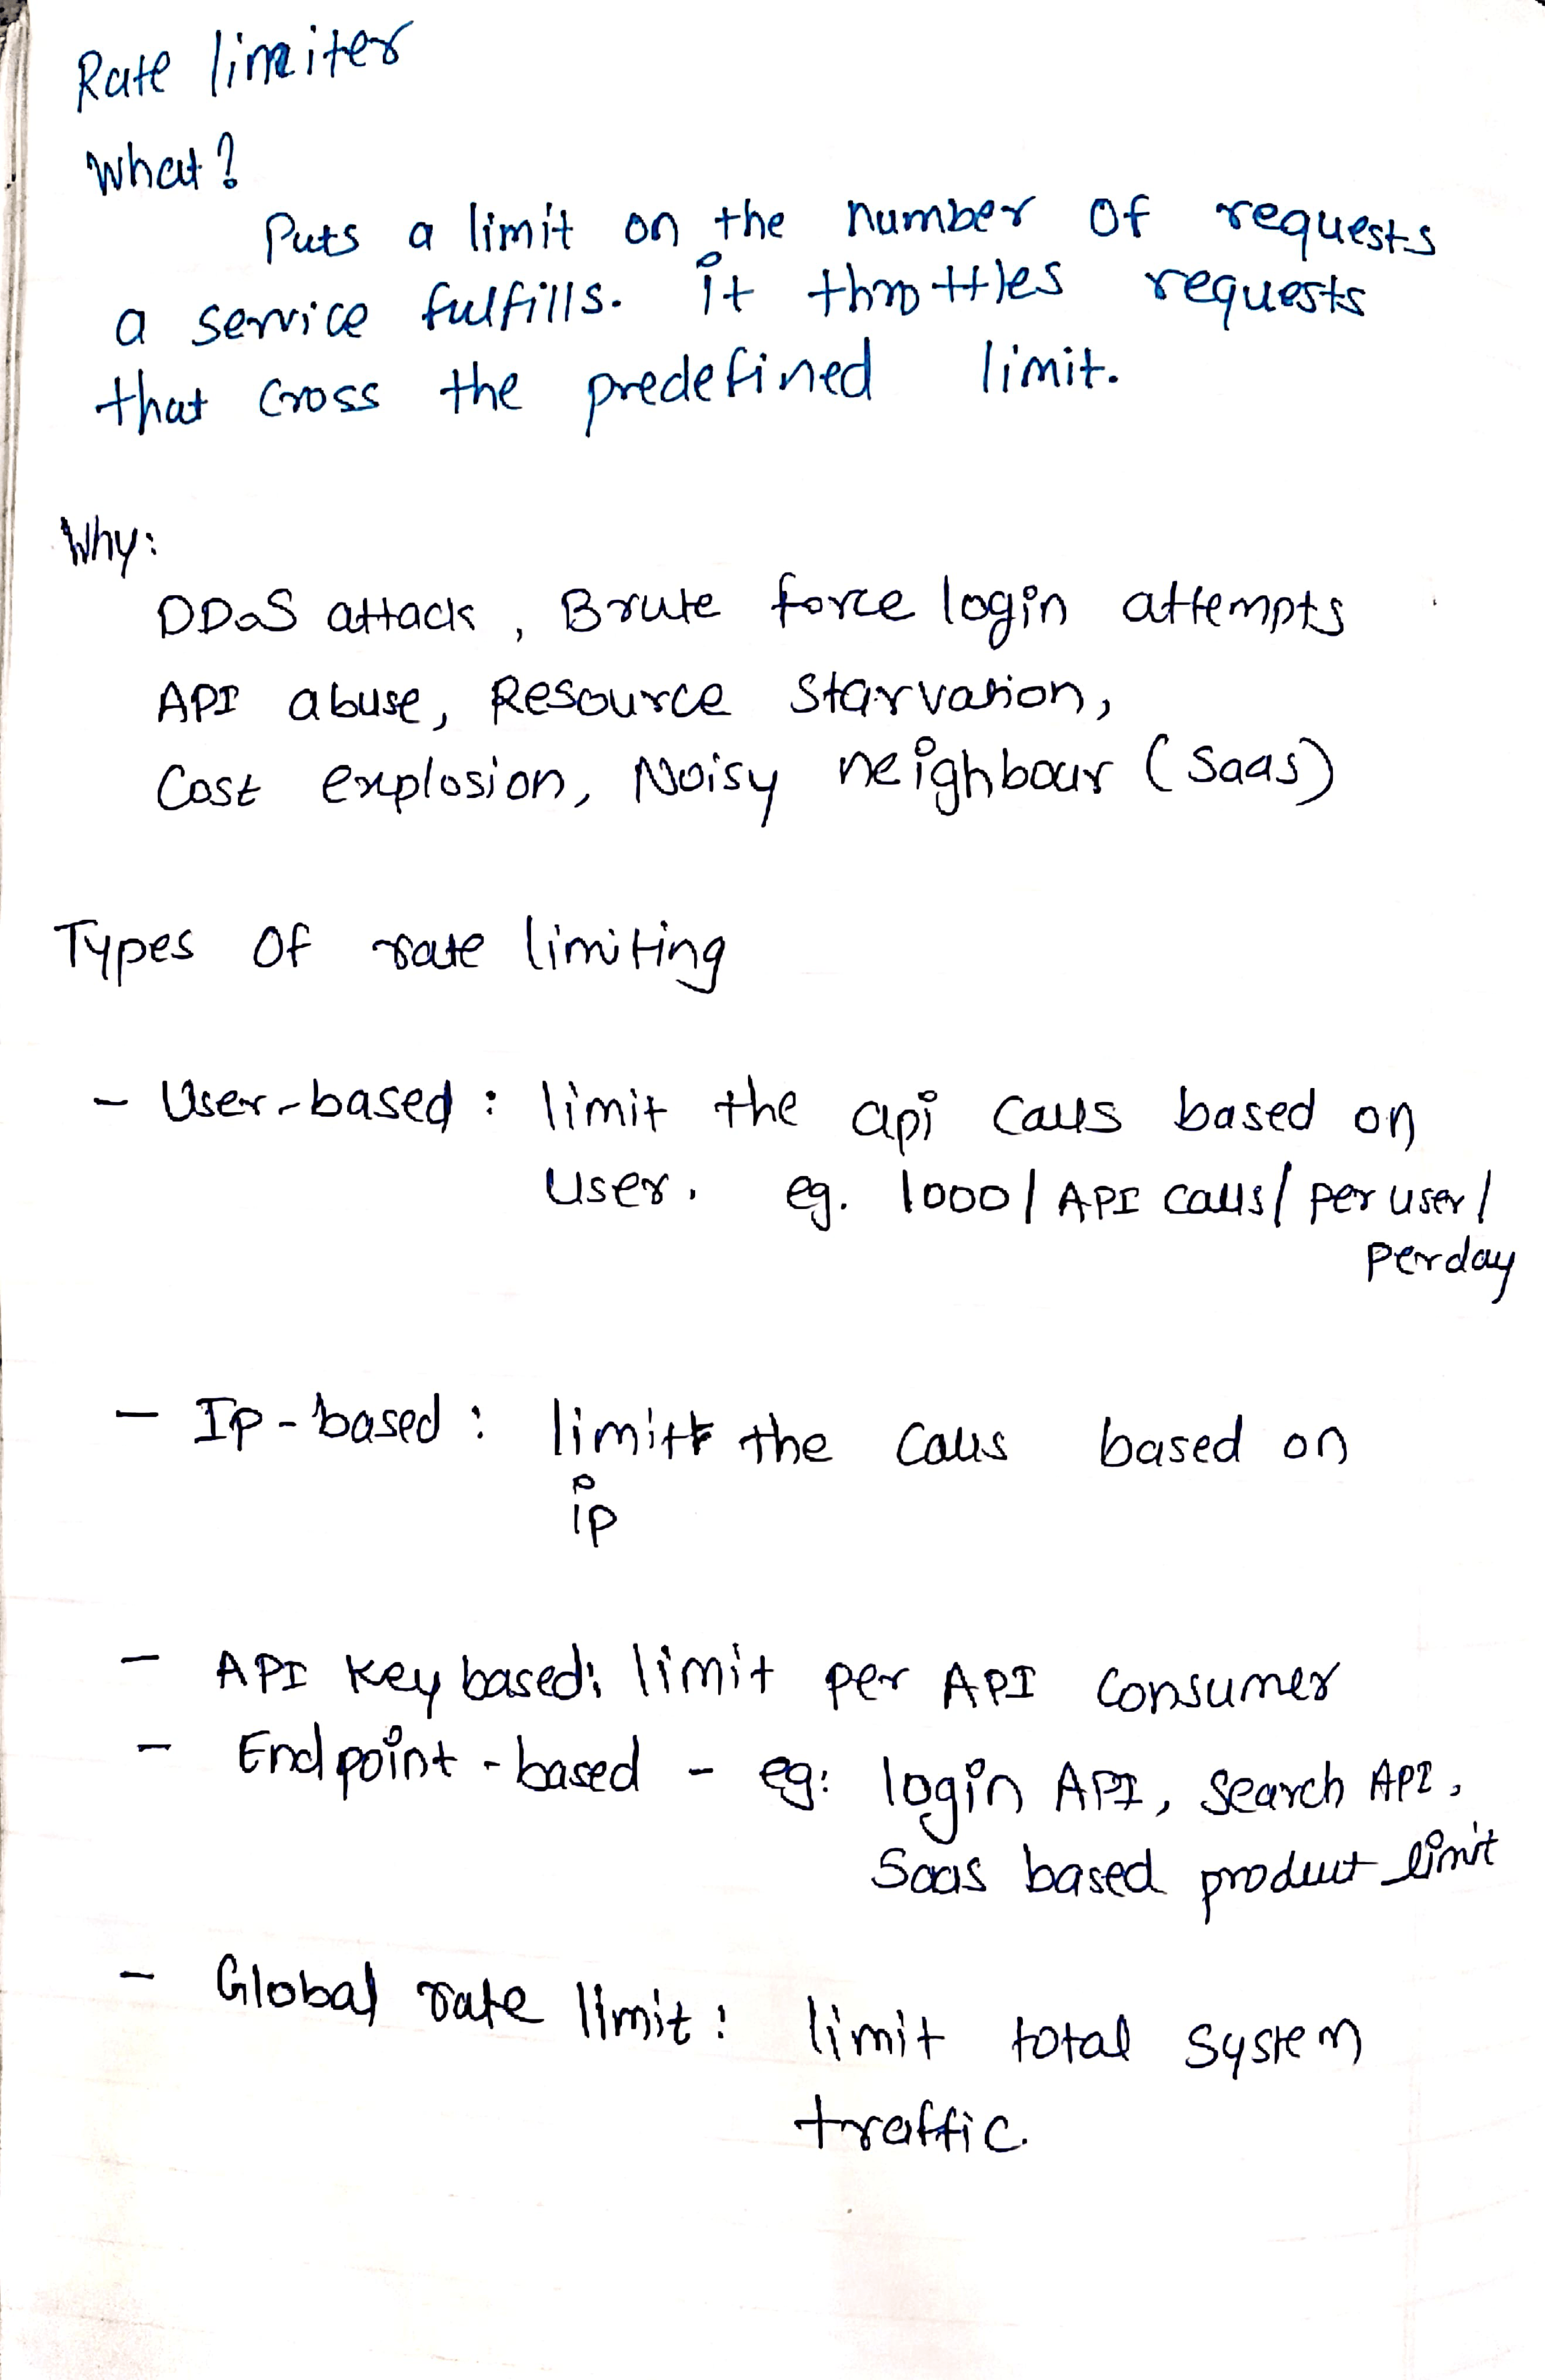 Rate limiter
What?
Puts a limit on the number of requests
a service fulfills. it throttles requests
that cross the predefined limit.
Why:
DDoS attack, Brute force login attempts
API abuse, Resource starvation,
Cost explosion, Noisy neighbour (Saas)
Types of rate limiting
- User-based : limit the api calls based on
user. eg. 1000/API calls/per user/
perday
- Ip-based : limit the calls based on
ip
- API key based: limit per API consumer
- Endpoint-based - eg: login API, search API,
Saas based product limit
- Global rate limit: limit total system
traffic.